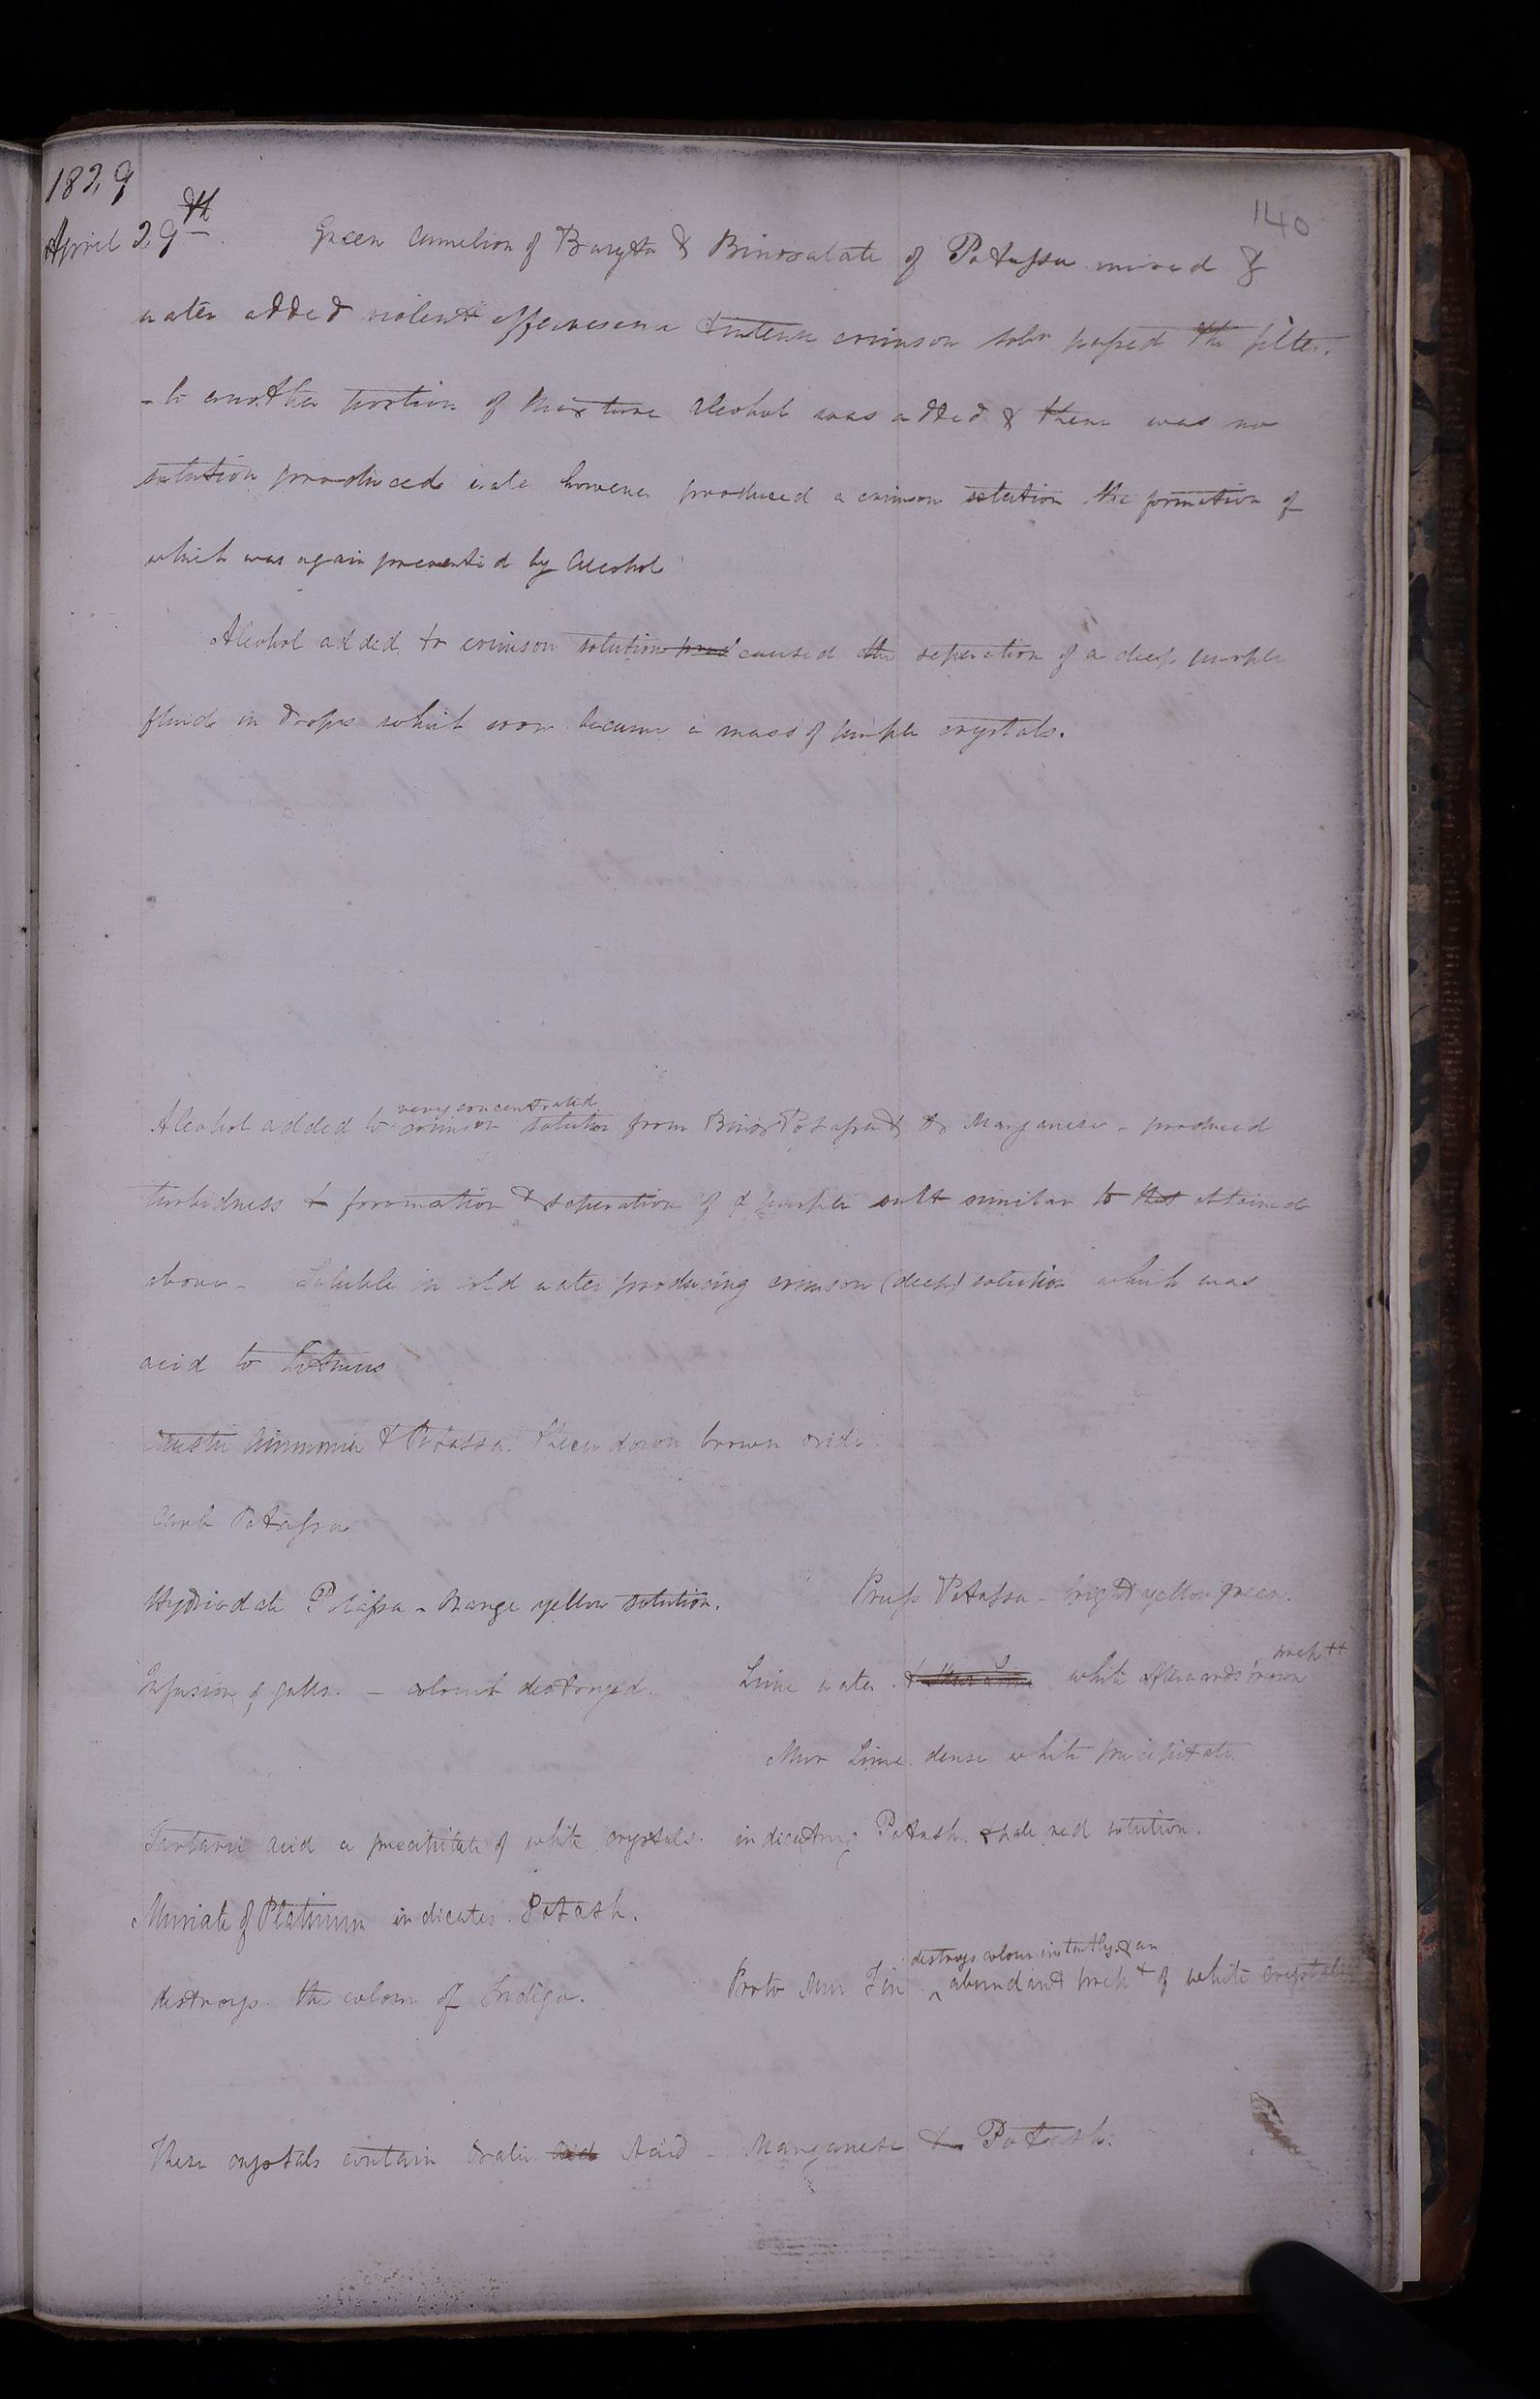 1829
140
April 29th. Green Camelion of Baryta & Binoxalate of Potassa mixed &
water added violent effervesence & intense crimson soln passed the filter.
- to another portion of mixture Alcohol was added & there was no
solution produced water however produced a crimson solution the formation of
which was again prevented by Alcohol
Alcohol added to crimson solution caused the seperation of a deep purple
fluid in drops which soon became a mass of purple crystals.
very concentrated
Alcohol added to crimson solution from Binox Potassa & Manganese - produced
turbidness & formation & seperation of a purple salt similar to that obtained
above - Soluble in cold water producing crimson (deep) solution which was
acid to Litmus
Caustic Ammonia & Potassa. threw down brown oxide
Carb Potassa
Hydriodate Potassa - Orange yellow solution. Pruss Potassa - bright yellow green.
precptt
Infusion of galls. - colour destroyed. Lime water white afterwards brown
Mur Lime dense white precipitate
Tartaric acid a precipitate of white crystals. indicating Potash. & pale red solution.
Muriate of Platinum indicates Potash.
destroys colour instantly & an
destroys the colour of Indigo. Proto Mur Tin ^ abundant precpt of white crystals
These crystals contain Oxalic Acid - Manganese & Potash.